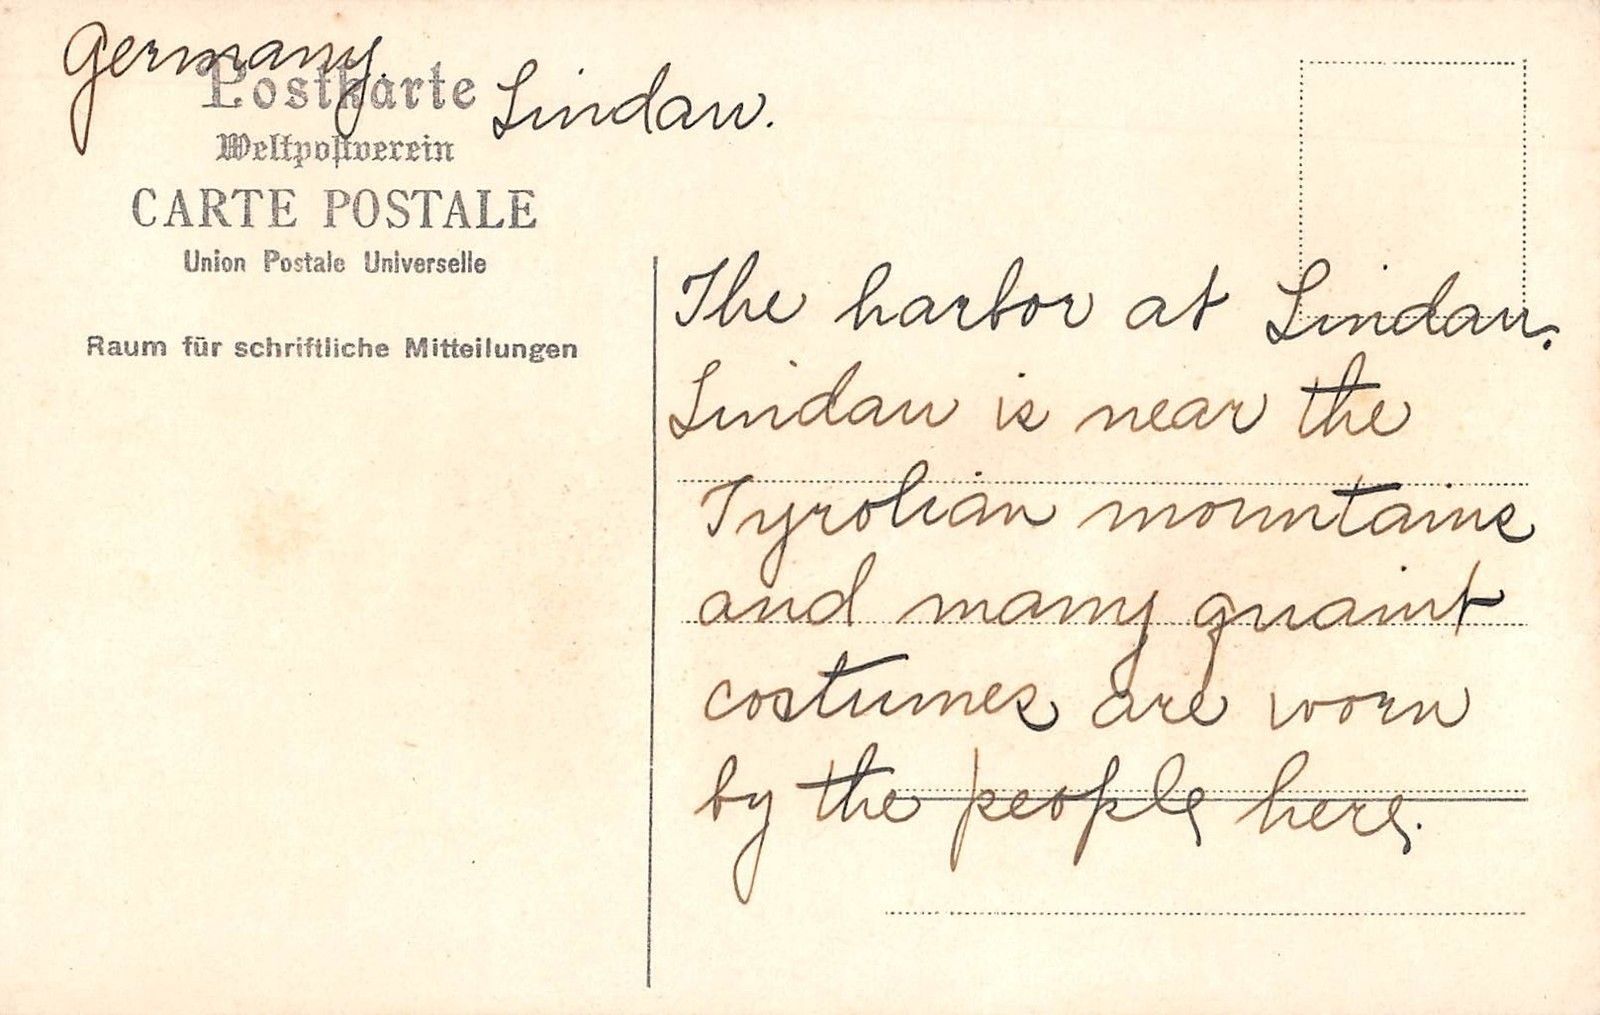 Germany.
Postkarte
Lindau.
Weltpostverein
CARTE POSTALE
Union Postale Universelle
Raum für schriftliche Mitteilungen
The harbor at Lindau.
Lindau is near the
Tyrolian mountains
and many quaint
costumes are worn
by the people here.